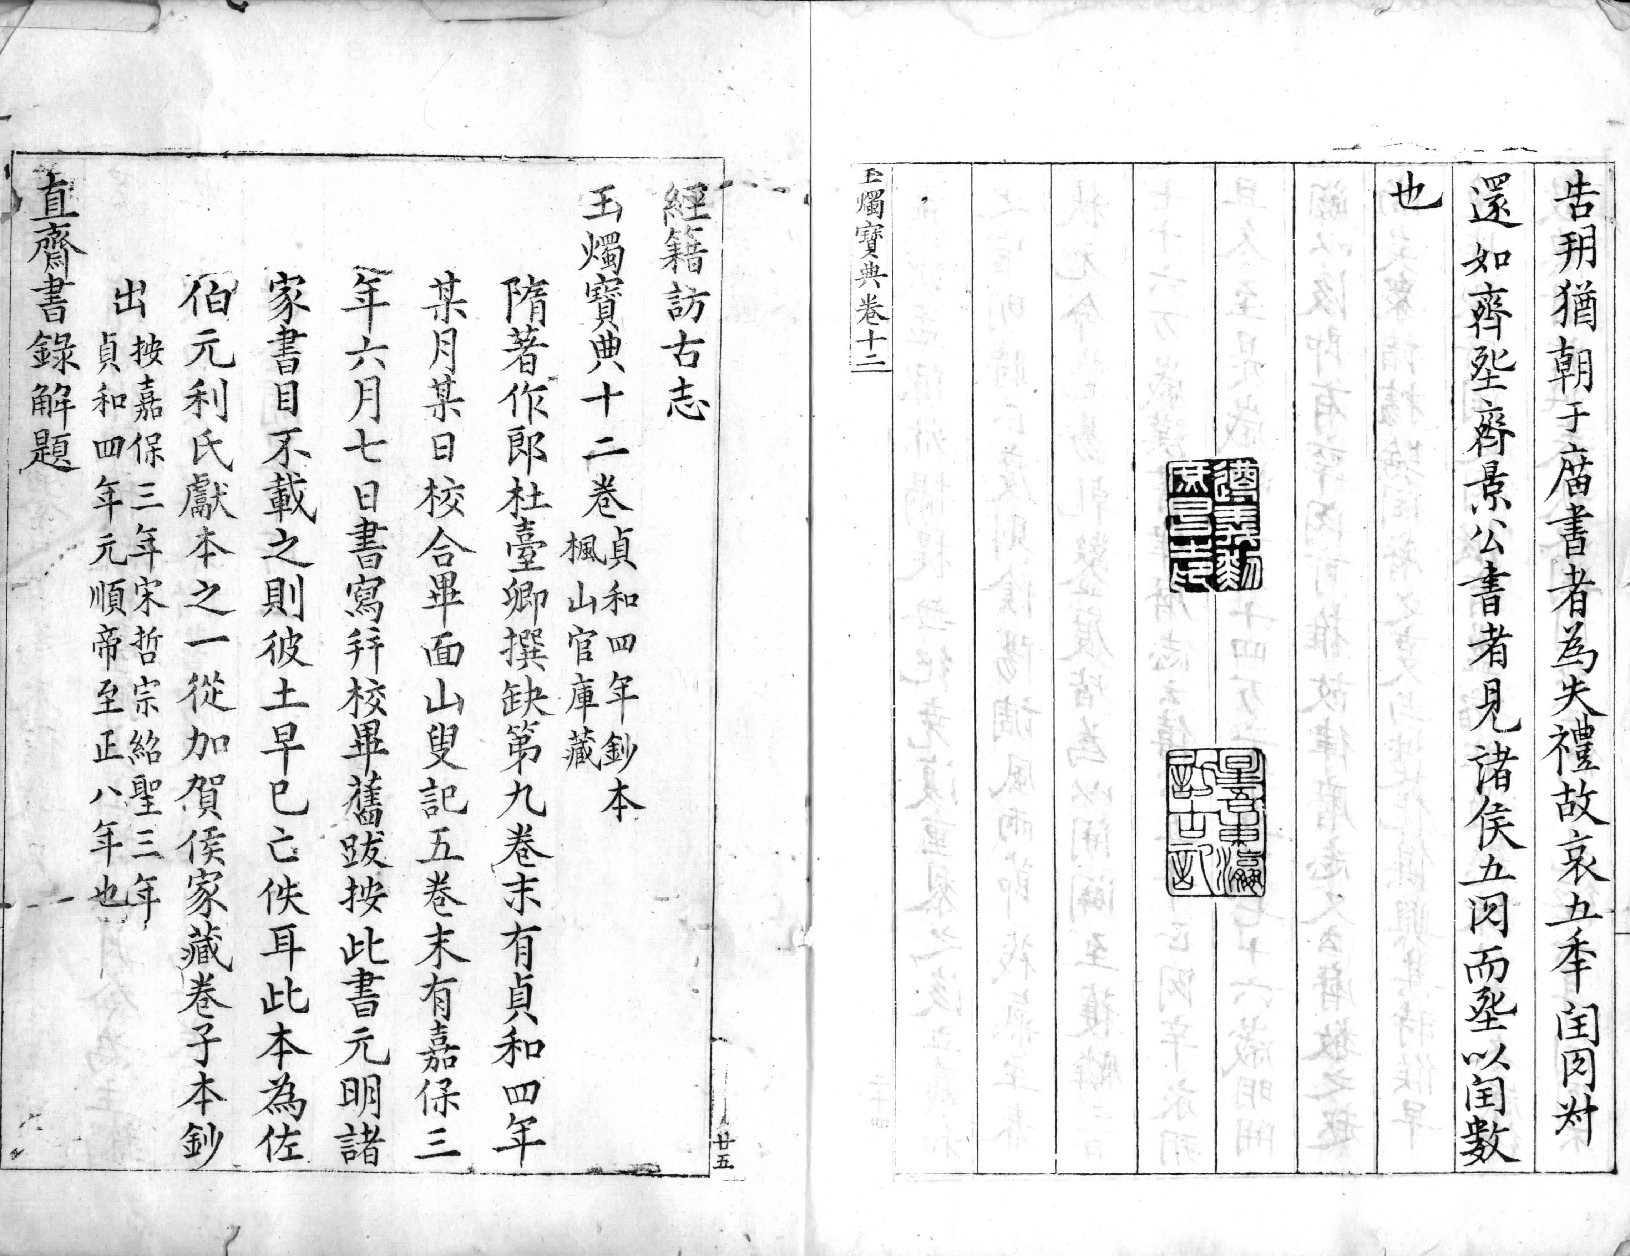 告朔猶朝于庿書者為失禮故哀五年閏月𦵏
還如齊𦵏齊景公書者見諸侯五月而𦵏以閏數
也
遵義黎
庶昌印
星吾東瀛
訪古記
玉燭寶典卷十二
廿五
經籍訪古志
玉燭寶典十二卷
貞和四年鈔本
楓山官庫藏
隋著作郎杜臺卿撰缺第九卷末有貞和四年
某月某日校合畢面山叟記五卷末有嘉保三
年六月七日書寫拜校畢舊跋按此書元明諸
家書目不載之則彼土早已亡佚耳此本為佐
伯元利氏獻本之一從加賀侯家藏卷子本鈔
出
按嘉保三年宋哲宗紹聖三年
貞和四年元順帝至正八年也
直齋書錄解題